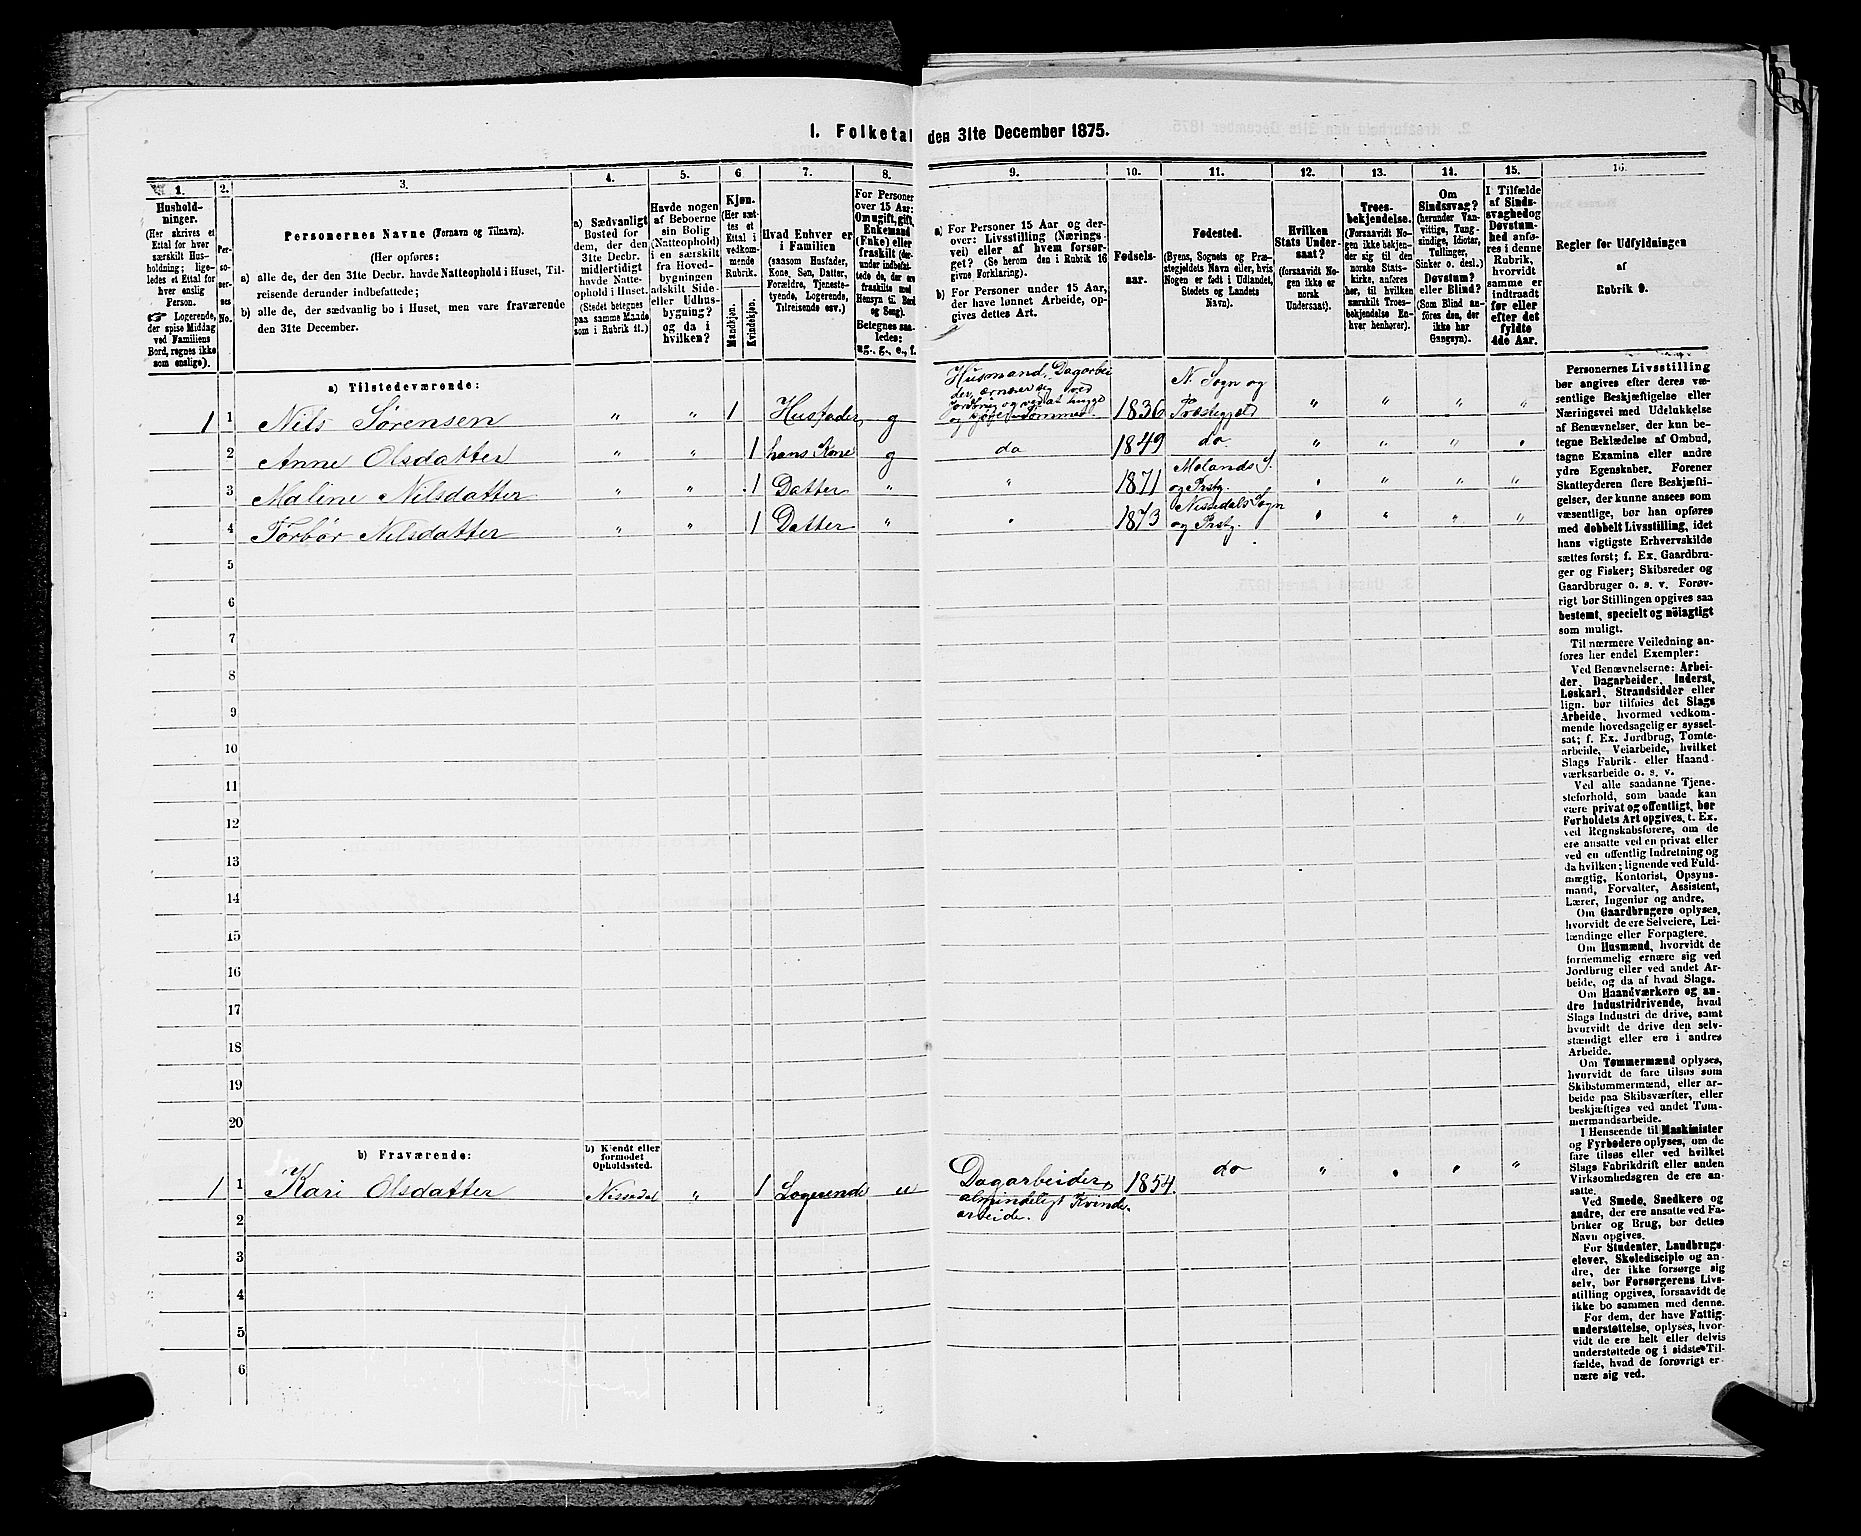 1. Folketal den 31te December 1875.
1. 2. 3. 4. 5. 6 7. 8. 9. 10. 11. 12. 13. 14. 15. 16.
Hushold-
ninger.
(Her skrives et
Ettal for hver
særskilt Hus-
holdning; lige-
ledes et Ettal for
hver enslig
Person.
☞ Logerende,
der spise Middag
ved Familiens
Bord, regnes ikke
som enslige).
Per-
so-
ner-
nes
No.
Personernes Navne (Fornavn og Tilnavn).
(Her opføres:
a) alle de, der den 31te Decbr. havde Natteophold i Huset, Til-
reisende derunder indbefattede;
b) alle de, der sædvanlig bo i Huset, men vare fraværende
den 31te December.
a) Sædvanligt
Bosted for
dem, der den
31te Decbr.
midlertidigt
havde Natte-
ophold i Huset
(Stedet betegnes
paa samme Maade
som i Rubrik 11.)
Havde nogen
af Beboerne
sin Bolig
(Natteophold)
i en særskilt
fra Hoved-
bygningen
adskilt Side-
eller Udhus-
bygning?
og da i
hvilken?
Kjøn.
(Her sæt-
tes et
Ettal i
vedkom-
mende
Rubrik.
Mandkjøn.
Kvindekjøn.
Hvad Enhver er
i Familien
(saasom Husfader,
Kone, Søn, Datter,
Forældre, Tjeneste-
tyende, Logerende,
Tilreisende osv.)
For Personer
over 15 Aar:
Om ugift, gift,
Enkemand
(Enke) eller
fraskilt (der-
under indbefat-
tede de, der ere
fraskilte med
Hensyn til Bord
og Seng).
Betegnes saa-
ledes:
ug., g., e., f.
a) For Personer 15 Aar og der-
over: Livsstilling (Nærings-
vei) eller af hvem forsør-
get? (Se herom den i Rubrik 16
givne Forklaring).
b) For Personer under 15 Aar,
der have lønnet Arbeide, op-
gives dettes Art.
Fødsels-
aar.
Fødested.
(Byens, Sognets og Præ-
stegjeldets Navn eller, hvis
Nogen er født i Udlandet,
Stedets og Landets
Navn).
Hvilken
Stats Under-
saat?
(forsaavidt No-
gen ikke er
norsk
Undersaat).
Troes-
bekjendelse.
(Forsaavidt Nogen
ikke bekjen-
der sig til den
norske Stats-
kirke, anføres
her, til hvilken
særskilt Troes-
bekjendelse En-
hver henhører).
Om
Sindssvag?
(herunder Van-
vittige, Tung-
sindige, Idioter,
Tullinger,
Sinker o. desl.)
Døvstum?
eller Blind?
(Som Blind an-
føres den, der
ikke har
Gangsyn).
I Tilfælde
af Sinds-
svaghed og
Døvstum-
hed anfø-
res i denne
Rubrik,
hvorvidt
samme er
indtraadt
før eller
efter det
fyldte
4de Aar.
Regler for Udfyldningen
af
Rubrik 9.
a) Tilstedeværende:
1 1 Nils Sørensen " " 1 Husfader g Husmand, Dagarbei
der, ærnærer sig ved
Jordbrug og ved at hugge
og kjøre Tømmer. 1836 N. Sogn og
Præstegjeld " " " "
2 Anne Olsdatter " " 1 hans Kone g do 1849 do. " " " "
3 Maline Nilsdatter " " 1 Datter " " 1871 Molands S.
og Prstg. " " " "
4 Torbør Nilsdatter " " 1 Datter " " 1873 Nissedals Sogn
og Prstg. " " " "
5
6
7
8
9
10
11
12
13
14
15
16
17
18
19
20
b) Fraværende:
b) Kjendt eller
formodet
Opholdssted.
1 1 Kari Olsdatter Nissedal " 1 Logerende u Dagarbeider,
almindeligt Kvinde-
arbeide. 1854. do " " " "
2
3
4
5
6
Personernes Livsstilling
bør angives efter deres væ-
sentlige Beskjæftigelse eller
Næringsvei med Udelukkelse
af Benævnelser, der kun be-
tegne Beklædelse af Ombud,
tagne Examina eller andre
ydre Egenskaber. Forener
Skatteyderen flere Beskjæfti-
gelser, der kunne ansees som
væsentlige, bør han opføres
med dobbelt Livsstilling, idet
hans vigtigste Erhvervskilde
sættes først; f. Ex. Gaardbru-
ger og Fisker; Skibsreder og
Gaardbruger o. s. v. Forøv-
rigt bør Stillingen opgives saa
bestemt, specielt og nöiagtigt
som muligt.
Til nærmere Veiledning an-
føres her endel Exempler:
Ved Benævnelserne: Arbei-
der, Dagarbeider, Inderst,
Løskarl, Strandsidder eller
lign. bør tilføies det Slags
Arbeide, hvormed vedkom-
mende hovedsagelig er syssel-
sat; f. Ex. Jordbrug, Tomte-
arbeide, Veiarbeide, hvilket
Slags Fabrik- eller Haand-
værksarbeide o. s. v.
Ved alle saadanne Tjene-
steforhold, som baade kan
være privat og offentligt, bør
Forholdets Art opgives, t. Ex.
ved Regnskabsførere, om de
ere ansatte ved en privat eller
ved en offentlig Indretning og
da hvilken; lignende ved Fuld-
mægtig, Kontorist, Opsyns-
mand, Forvalter, Assistent,
Lærer, Ingeniør og andre.
Om Gaardbrugere oplyses,
hvorvidt de ere Selveiere, Lei-
lændinge eller Forpagtere.
Om Husmænd, hvorvidt de
fornemmelig ernære sig ved
Jordbrug eller ved andet Ar-
beide, og da af hvad Slags.
Om Haandværkere og an-
dre Industridrivende, hvad
Slags Industri de drive, samt
hvorvidt de drive den selv-
stændigt eller ere i andres
Arbeide.
Om Tømmermænd oplyses,
hvorvidt de fare tilsøs som
Skibstømmermænd, eller ar-
beide paa Skibsværfter, eller
beskjæftiges ved andet Tøm-
mermandsarbeide.
I Henseende til Maskinister
og Fyrbødere oplyses, om de
fare tilsøs eller ved hvilket
Slags Fabrikdrift eller anden
Virksomhedsgren de ere an-
satte.
Ved Smede, Snedkere og
andre, der ere ansatte ved Fa-
briker og Brug, bør dettes
Navn opgives.
For Studenter, Landbrugs-
elever, Skoledisciple og an-
dre, der ikke forsørge sig
selv, bør Forsørgerens Livs-
stilling opgives, forsaavidt de
ikke bo sammen med denne.
For dem, der have Fattig-
understøttelse, oplyses, hvor-
vidt de ere helt eller delvis
understøttede og i sidste Til-
fælde, hvad de forøvrigt er-
nære sig ved.